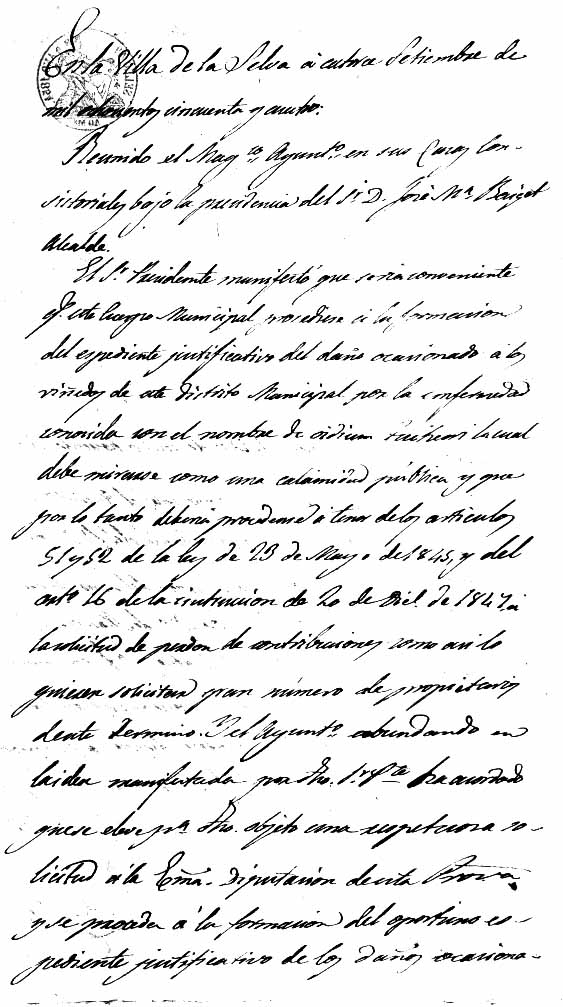 En la Villa de la Selva à catorce Setiembre de
mil ochocientos cincuenta y cuatro:
Reunido el Mag.co Ayunt.o en sus Casas Con-
sistoriales bajo la presidencia del S.r D. José M.a Baiget
Alcalde.
El S.r Presidente manifestó que seria conveniente
q.e este Cuerpo Municipal procediese á la formacion
del espediente justificativo del daño ocasionado á los
viñedos de este distrito Municipal por la enfermedad
conocida con el nombre de oidium tuikeri la cual
debe mirarse como una calamidad pública y que
por lo tanto deberia procederse á tenor de los articulos
51 y 52 de la ley de 23 de Mayo de 1845, y del
art.o 16 de la instruccion de 20 de Dic.e de 1847 á
la solicitud de perdon de contribuciones como asi lo
quieren solicitar gran número de propietarios
de este termino. Y el Ayunt.o abundando en
la idea manifestada por dho. S.r P.te ha acordado
que se eleve p.a dho. objeto una respetuosa so-
licitud á la Ecma. Diputacion de esta Prov.a
y se proceda á la formacion del oportuno es-
pediente justificativo de los daños ocasiona-